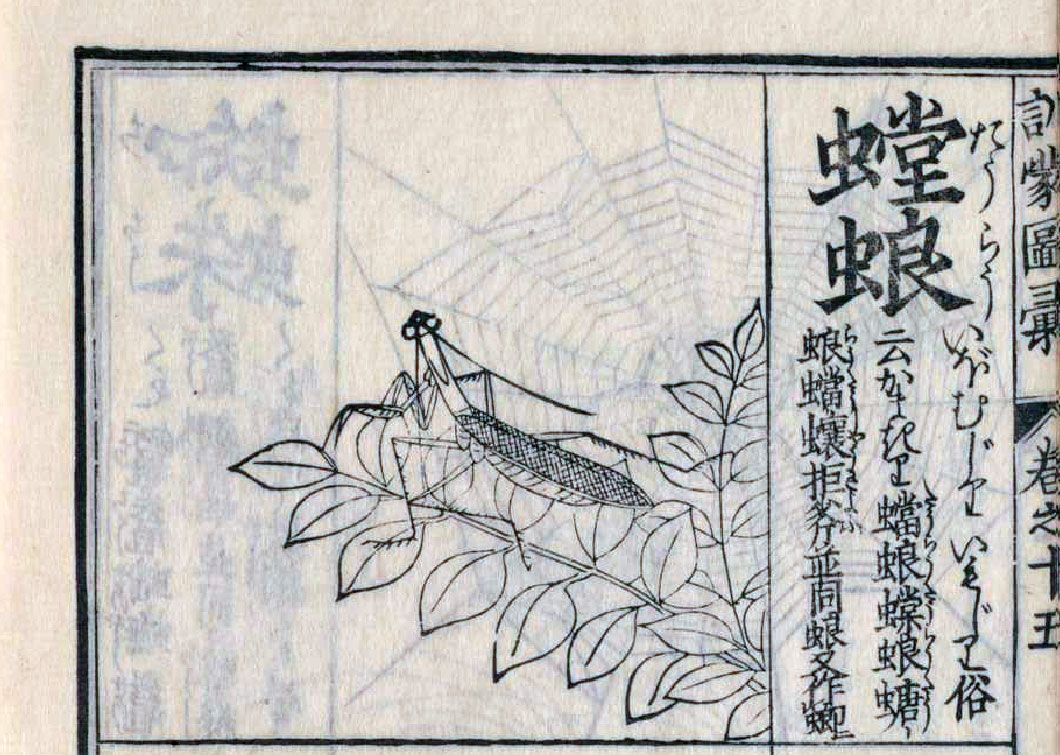 訓蒙圖彙 卷之十五
たうらう
螳蜋
いぼむじり いもじり 俗
云かまきり 蟷蜋 蜋螗
蜋蟷蠰拒斧並同蜋又作螂